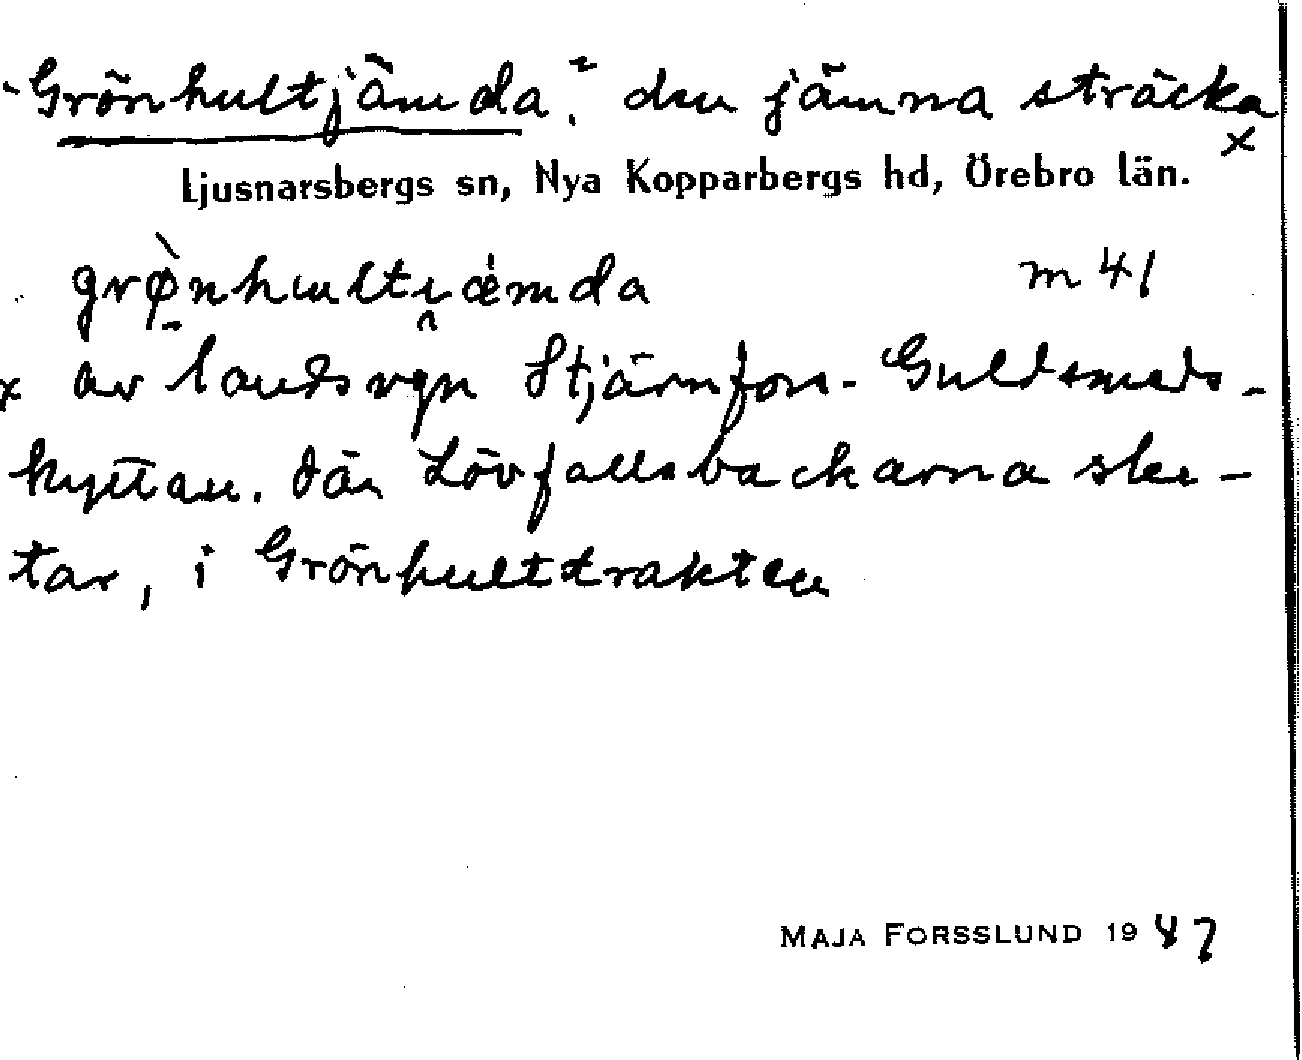 "Grönhultjämda." den jämna sträcka x
Ljusnarsbergs sn, Nya Kopparbergs hd, Örebro län.
grø̀nhulti̯ǽmda m 41
x av landsvgn Stjärnfors-Guldsmeds-
hyttan. där Lövfallsbackarna slu-
tar, i Grönhulttrakten
MAJA FORSSLUND 1947